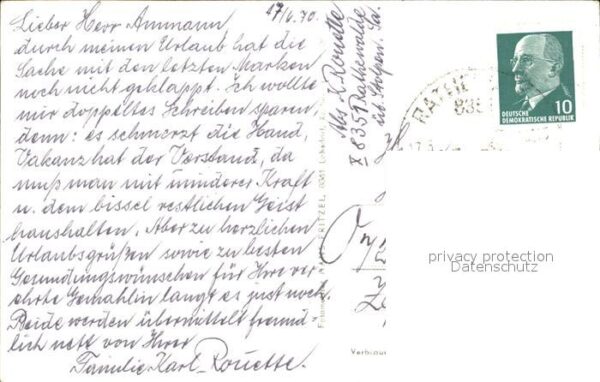 17/6.70
Lieber Herr Ammann
durch meinen Urlaub hat die
Sache mit den letzten Marken
noch nicht geklappt. Ich wollte
mir doppeltes Schreiben sparen,
denn: es schmerzt die Hand,
Vakanz hat der Verstand, da
muß man mit minderer Kraft
u. dem bissel restlichen Geist
haushalten. Aber zu herzlichen
Urlaubsgrüßen sowie zu besten
Gesundungswünschen für Ihre ver-
ehrte Gemahlin langt es just noch.
Beide werden übermittelt freund-
lich nett von Ihrer
Familie Karl-Rouette.
Abs K Rouette
X 8351 Rathewalde
üb. Stolpen Sa.
FRITZEL, 8351
RATHE
835
10
DEUTSCHE
DEMOKRATISCHE REPUBLIK
privacy protection
Datenschutz